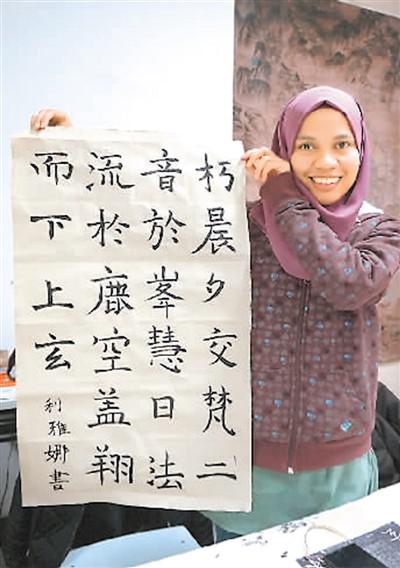 朽晨夕交梵二
音於峯慧日法
流於鹿空盖翔
而下上玄
利雅娜書